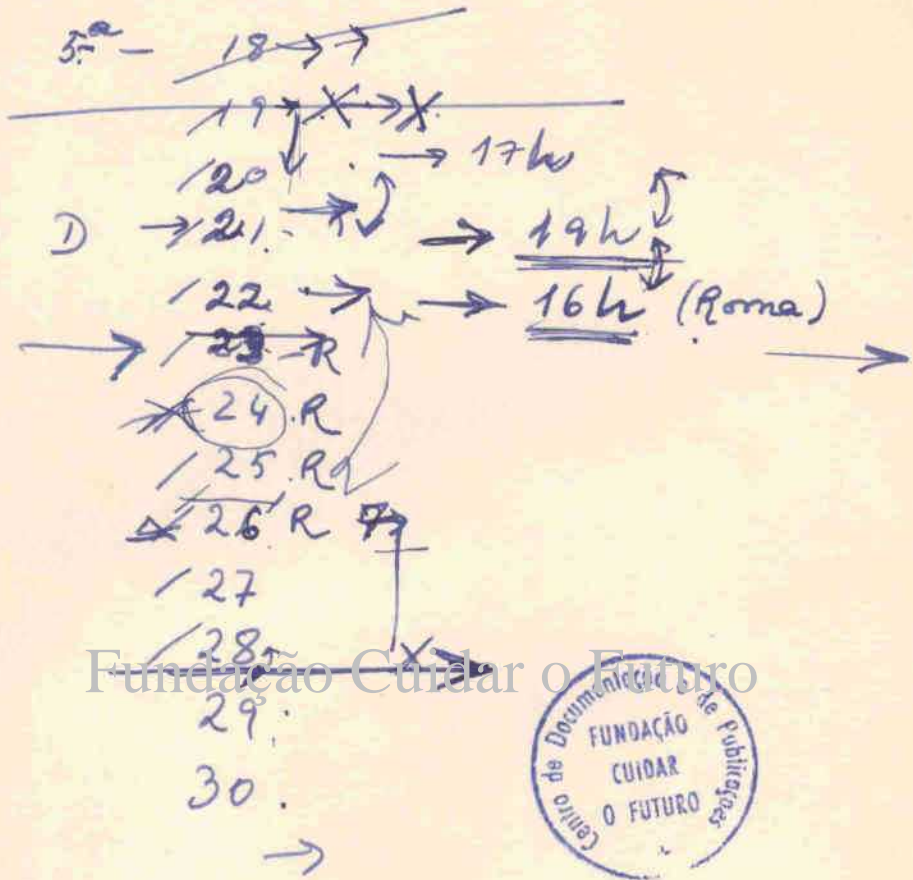 5.ª - 18 → →
19 → X → X
20 . → 17h
D → 21. → → 19h
22 → → 16h (Roma)
→ 23 R
24 . R
25 . R
26 R 7
27
28 X →
Fundação Cuidar o Futuro
29 .
30 .
→
Centro de Documentação e de Publicações
FUNDAÇÃO
CUIDAR
O FUTURO